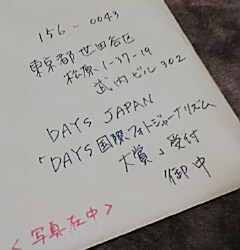 156-0043
東京都世田谷区
松原1-37-19
武内ビル302
DAYS JAPAN
「DAYS国際フォトジャーナリズム
大賞」受付
御中
<写真在中>